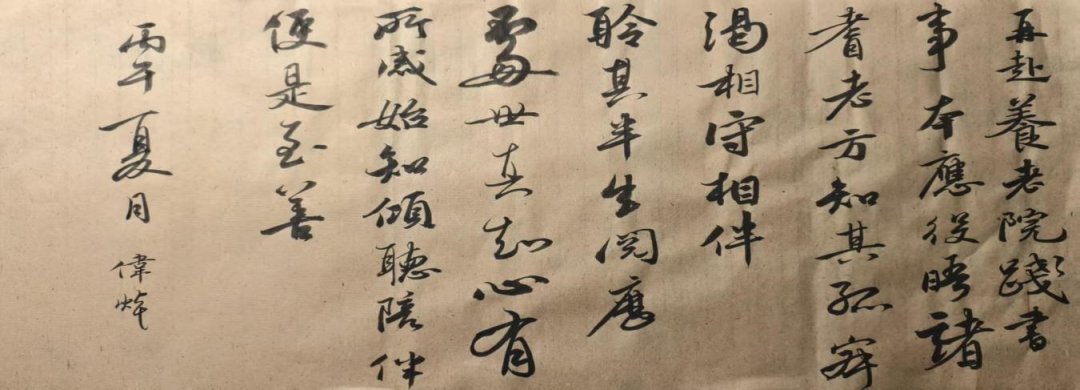 再赴養老院踐書
事本應役晤諸
耆老方知其孤寂
渴相守相伴
聆其半生閱歷
處世真知心有
所感始知傾聽陪伴
便是至善
丙午夏月 偉